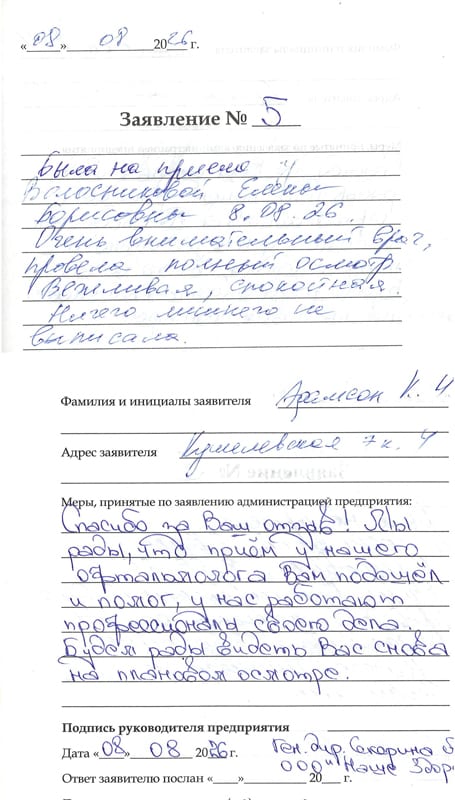 «08» 08 2026 г.
Заявление № 5
Была на приеме у
Волосниковой Елены
Борисовны 8.08.26.
Очень внимательный врач,
провела полный осмотр.
Вежливая, спокойная.
Ничего лишнего не
выписала.
Фамилия и инициалы заявителя К. И.
Адрес заявителя Кушелевская 7к. 4
Меры, принятые по заявлению администрацией предприятия:
Спасибо за Ваш отзыв! Мы
рады, что приём у нашего
офтальмолога Вам подошёл
и помог, у нас работают
профессионалы своего дела.
Будем рады видеть Вас снова
на плановом осмотре.
Подпись руководителя предприятия
Дата «08» 08 2026 г. Ген. дир. Сахарина
ООО "Наше Здор
Ответ заявителю послан «___» 20 г.